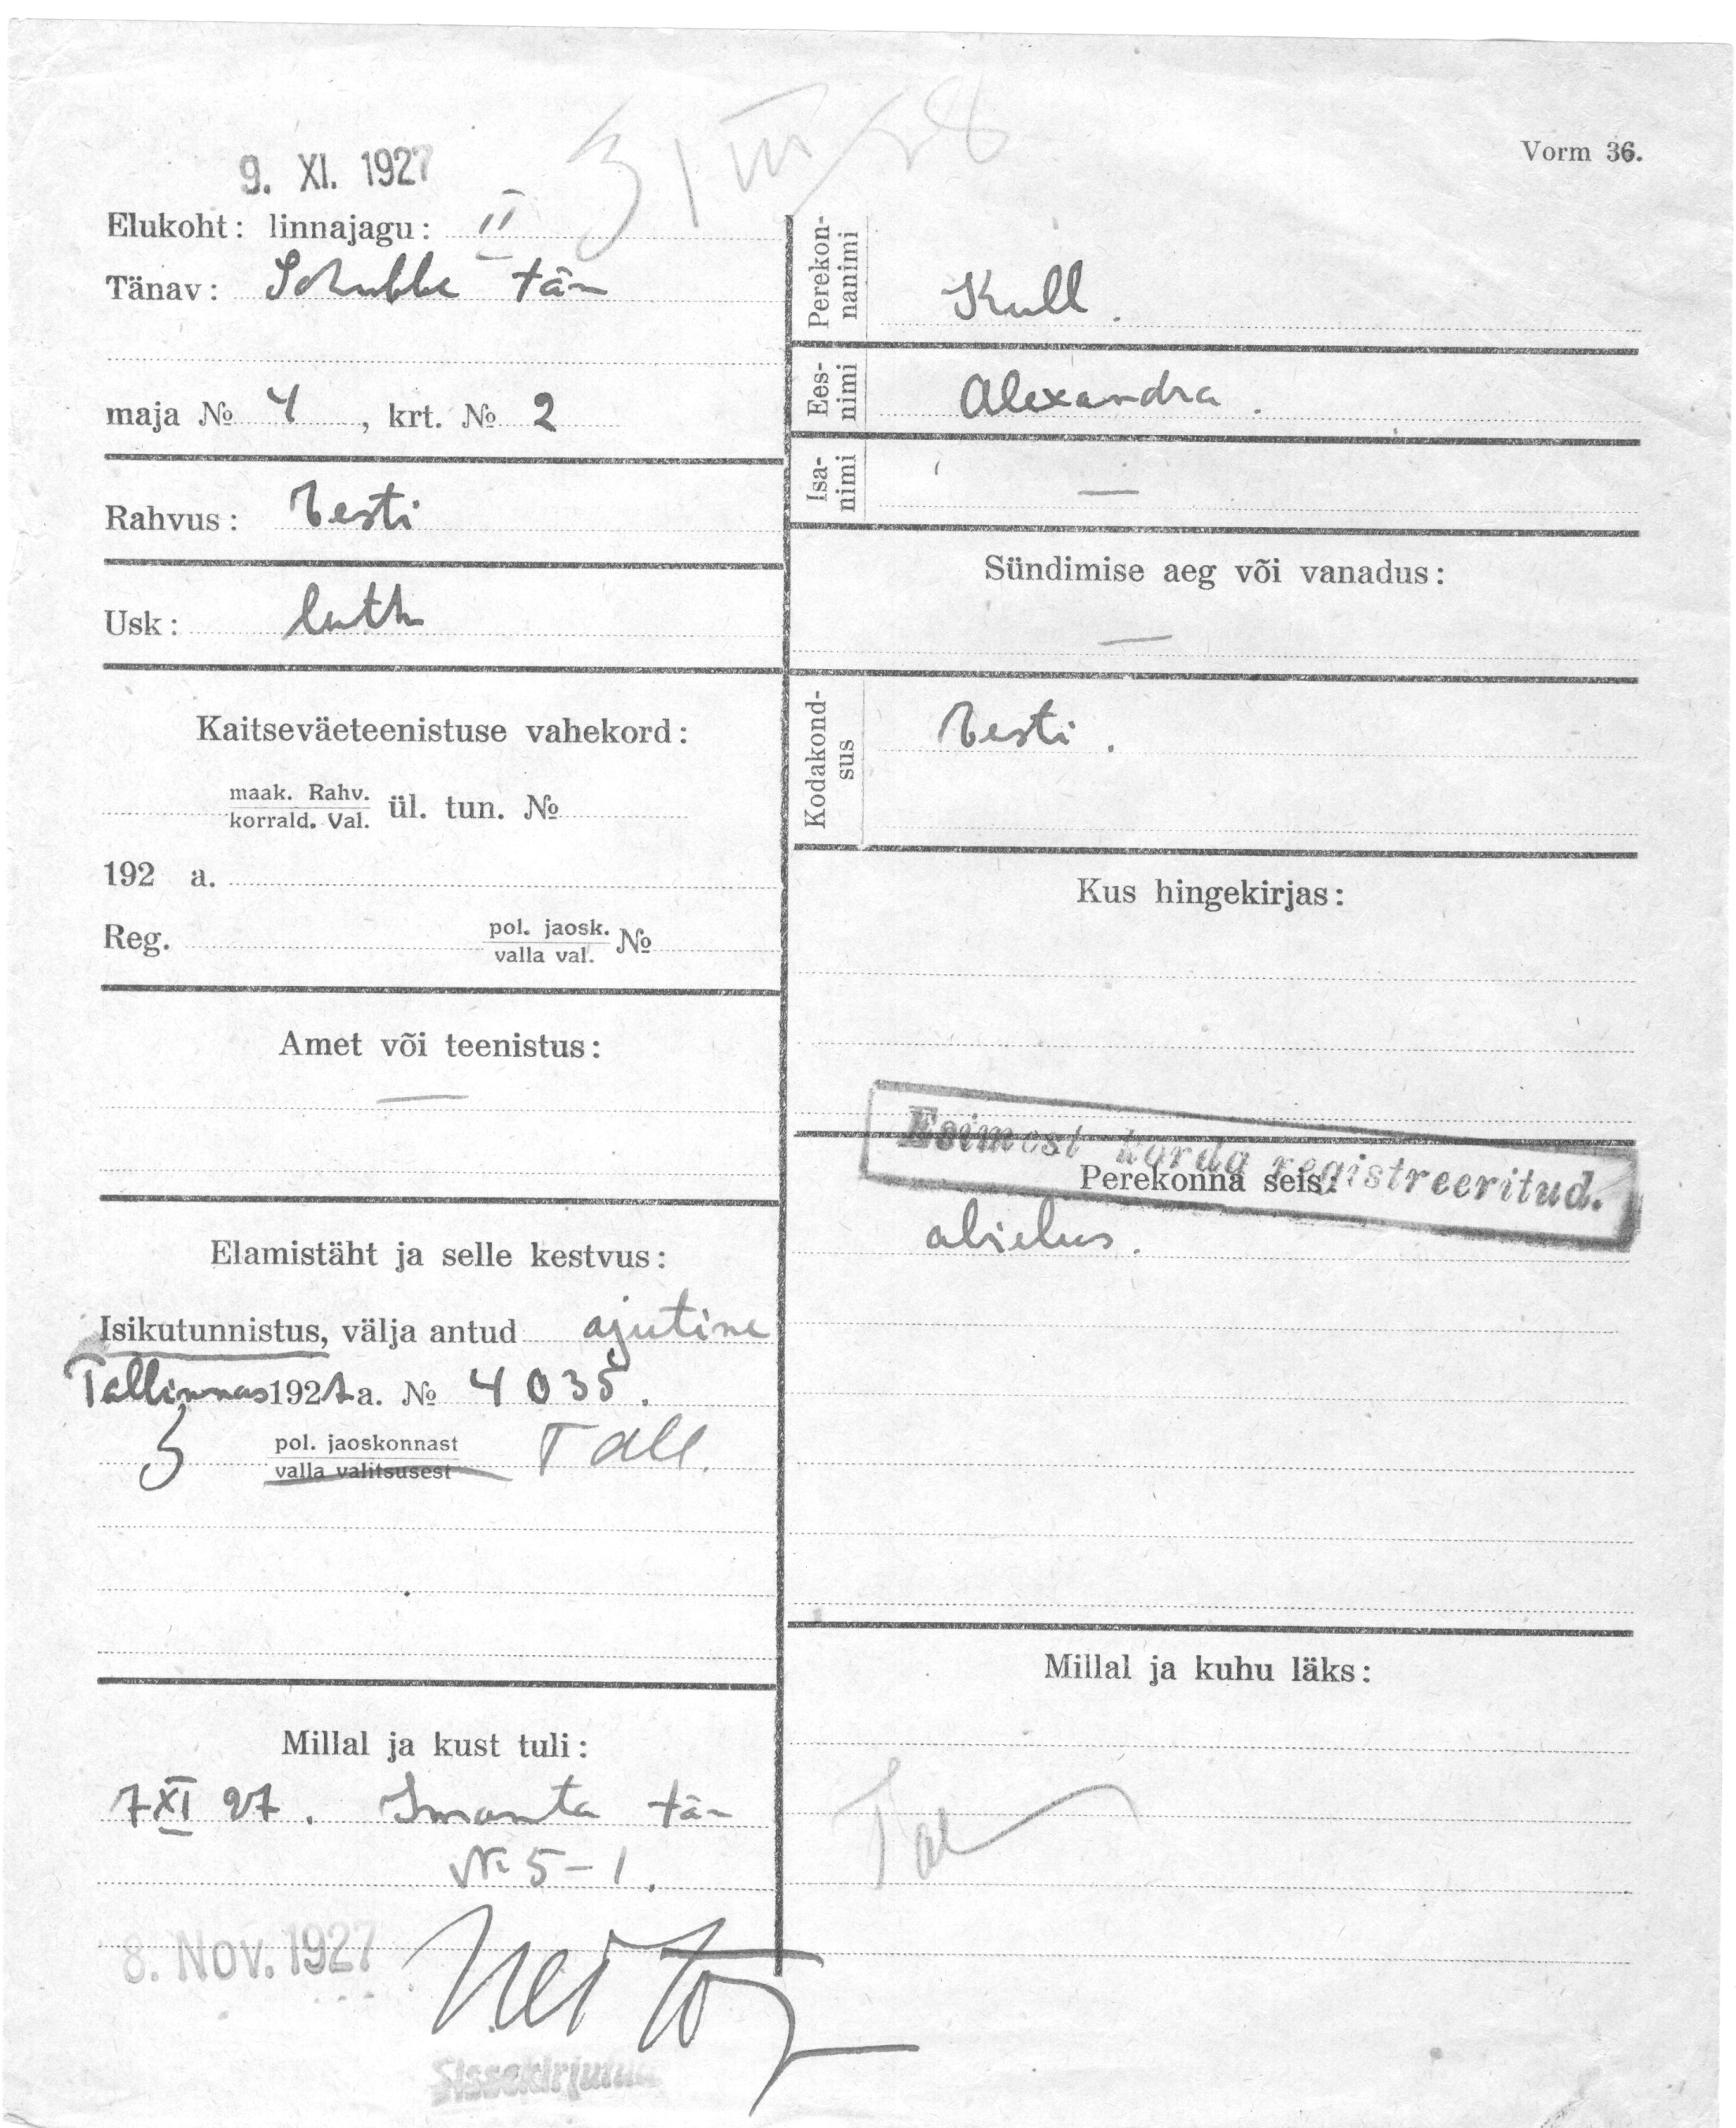 Vorm 36.
9. XI. 1927
31 VII 28
Elukoht: linnajagu: II
Tänav: Schubbe tän
maja № 4, krt. № 2
Rahvus: Eesti
Usk: luth
Kaitseväeteenistuse vahekord:
maak. Rahv.
korrald. Val. ül. tun. №
192 a.
Reg. pol. jaosk.
valla val. №
Amet või teenistus:
—
Elamistäht ja selle kestvus:
Isikutunnistus, välja antud ajutine
Tallinnas 1921 a. № 4035.
5 pol. jaoskonnast Tall.
valla valitsusest
Millal ja kust tuli:
7 XI 27. Imanta tän
№ 5-1.
8. NOV. 1927
Perekonnanimi
Kull.
Eesnimi
Alexandra.
Isanimi
—
Sündimise aeg või vanadus:
—
Kodakondsus
Eesti.
Kus hingekirjas:
Esimest korda registreeritud.
Perekonna seis:
abielus.
Millal ja kuhu läks: